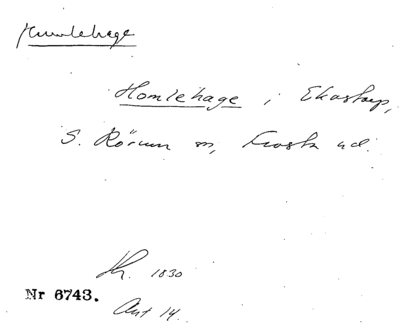 Humlehage
Homlehage i Ekastorp,
S. Rörum sn, Frosta hd.
1830
Nr 6743.
Ant 14.